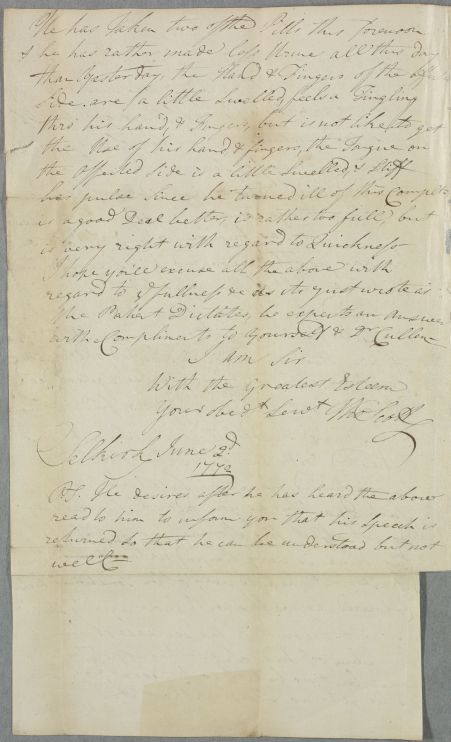 He has Taken two of the Pills this Forenoon
& he has rather made less Urine all this Day
than Yesterday, the Hand & Fingers of the affec
side, are a little Swelled, feels a Tingling
thro his hand, & Fingers, but is not like to get
the Use of his hand & fingers, the Tongue on
the affected side is a little Swelled, & Stiff
his pulse since he turned ill of this Complt
is a good Deal better, is rather too full, but
is very right with regard to Quickness
I hope youill excuse all the above with
regard to ye fullness &c as its just wrote as
the Patient Dictates, he expects an Answer
with Compliments to Yourself & Dr Cullen
I am Sir
With the Greatest Esteem
Your obedt Servt Scott
Selkirk June 2d
1772
PS. He desires after he has heard the above
read to him to inform you that his Speech is
returned so that he can be understood but not
well